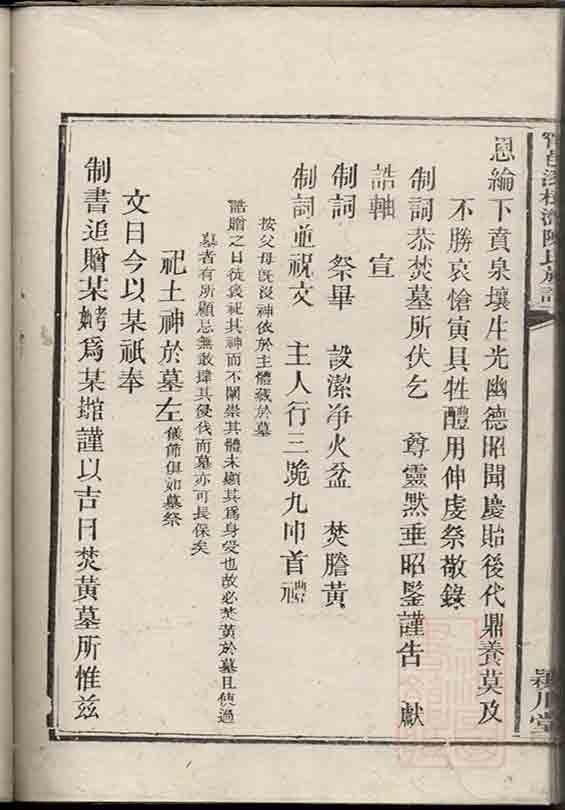 恩綸下賁泉壤生光幽德昭聞慶貽後代鼎養莫及
不勝哀愴寅具牲醴用伸虔祭敬錄
制詞恭焚墓所伏乞　尊靈默垂昭鑒謹告　獻
誥軸　宣
制詞　祭畢　設潔净火盆　焚謄黃
制詞並祝文　主人行三跪九叩首禮
按父母既沒神依於主體藏於墓
誥贈之日徒褒祀其神而不闡崇其體未顯其爲身受也故必焚黃於墓且使過
墓者有所顧忌無敢肆其侵伐而墓亦可長保矣
祀土神於墓左儀節俱如墓祭
文曰今以某祇奉
制書追贈某考妣爲某謹以吉日焚黃墓所惟茲
陳氏族譜
潁川堂